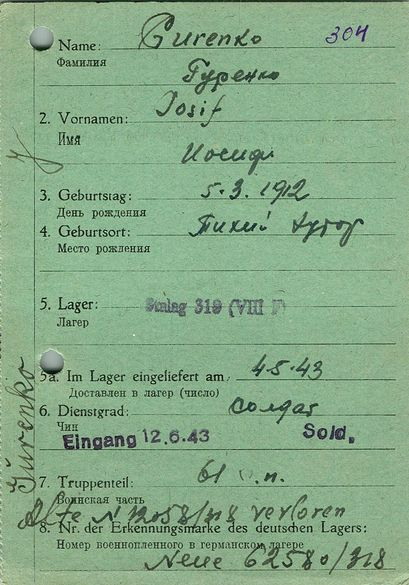 304
Name: Gurenko
Фамилия
Гуренко
2. Vornamen: Iosif
Имя
Иосиф
3. Geburtstag: 5.3.1912
День рождения
4. Geburtsort: Тихий Хутор
Место рождения
5. Lager: Stalag 319 (VIII F)
Лагерь
5a. Im Lager eingeliefert am: 4.5.43
Доставлен в лагерь (число)
6. Dienstgrad: солдат
Чин
Eingang 12.6.43 Sold.
7. Truppenteil: 61 п.
Воинская часть
Alte N 12058/318 verloren
8. Nr. der Erkennungsmarke des deutschen Lagers:
Номер военнопленного в германском лагере
Neue 62580/318
Gurenko